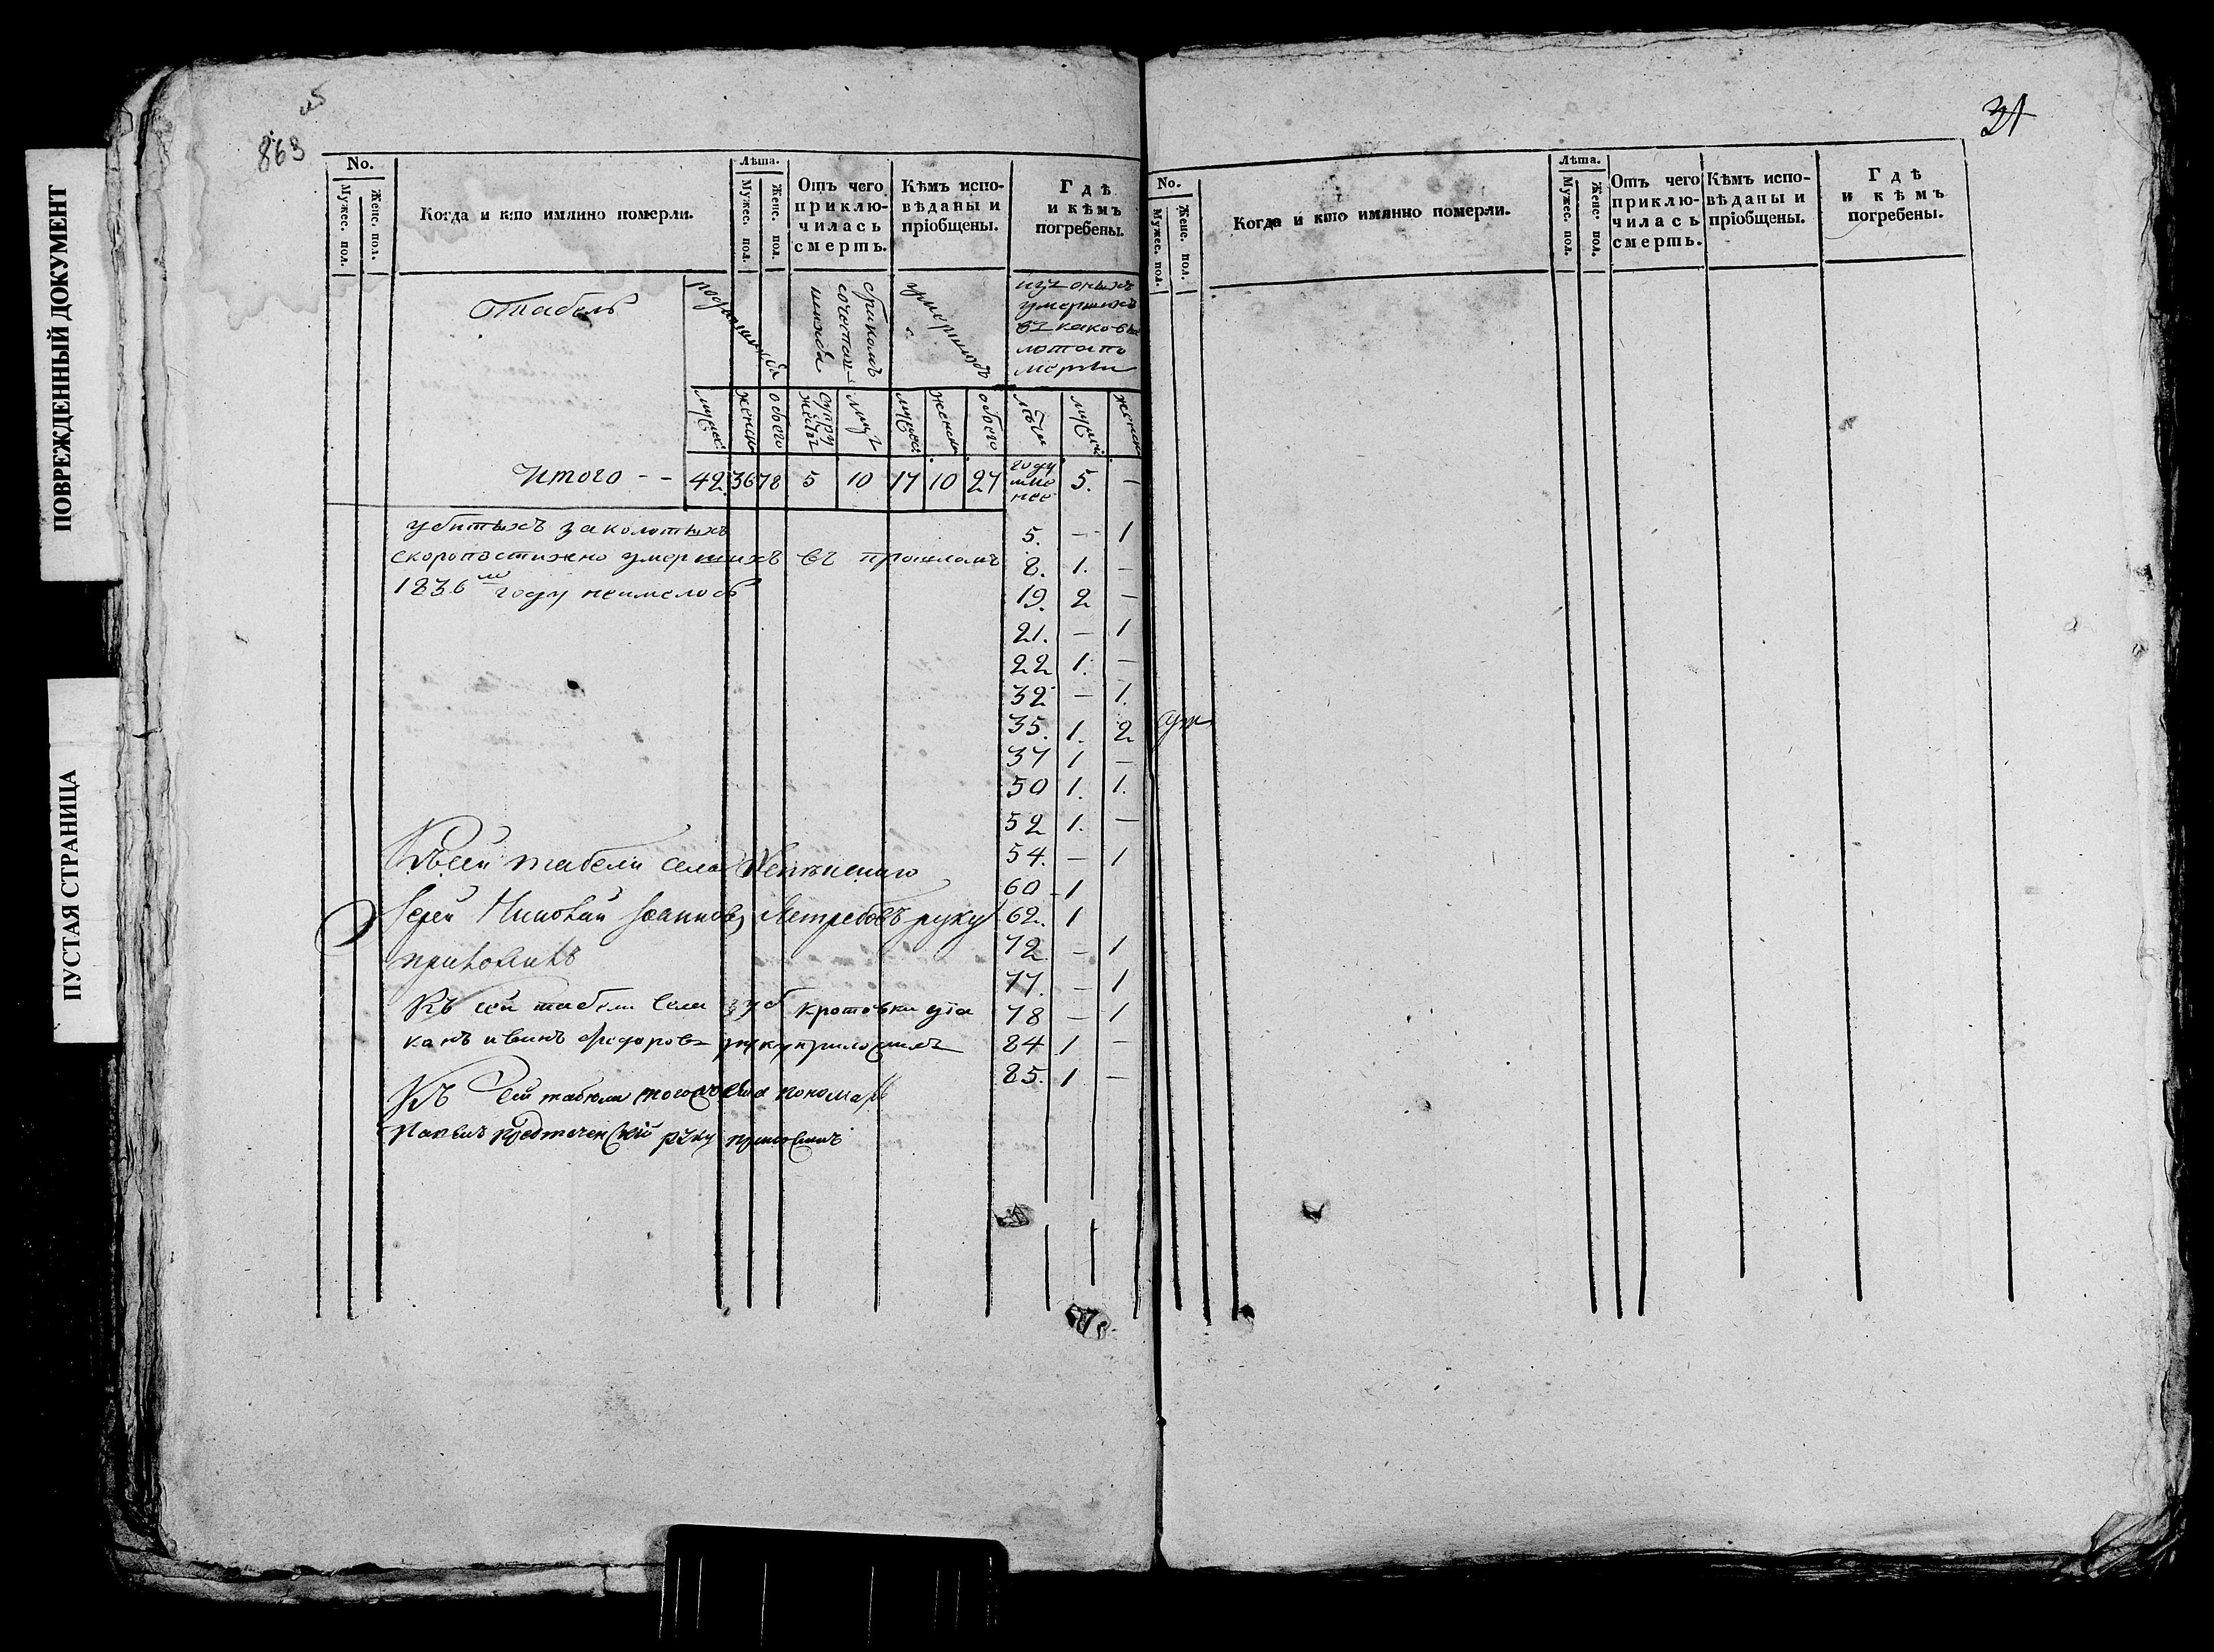 ПОВРЕЖДЕННЫЙ ДОКУМЕНТ
ПУСТАЯ СТРАНИЦА
863
No.
Мужес. пол.
Женс. пол.
Когда и кто имянно померли.
Лѣта.
Мужес. пол.
Женс. пол.
Отъ чего
приклю-
чилась
смерть.
Кѣмъ испо-
вѣданы и
пріобщены.
Гдѣ
и кѣмъ
погребены.
Табель
бракомъ
умершихъ
изъ оныхъ
умершихъ
въ каковы
лета по
мерли
мужес.
женск.
обоего
супру
жествъ
лицъ
мужес.
женск.
обоего
мужес.
женск.
Итого - - 42. 36 78 5 10 17 10 27
году
5. —
5. — 1
8. 1. —
19. 2 —
21. — 1
22 1. —
32 — 1.
35. 1. 2
37 1 —
50 1. 1.
52 1. —
54. — 1
60 - 1
62. 1
72 — 1
77. — 1
78 — 1
84 1 —
85. 1 —
убитыхъ заколотыхъ
скоропостижно умершихъ въ прошломъ
1836 му году неимелось
Къ сей табели села
Іерей Іоанновъ Ястребовъ руку
приложилъ
Къ сей табели села Кротовки діа
конъ Федоровъ руку приложилъ
Къ сей табели тогожъ села пономарь
Предтеченский руку приложилъ
31
No.
Мужес. пол.
Женс. пол.
Когда и кто имянно померли.
Лѣта.
Мужес. пол.
Женс. пол.
Отъ чего
приклю-
чилась
смерть.
Кѣмъ испо-
вѣданы и
пріобщены.
Гдѣ
и кѣмъ
погребены.